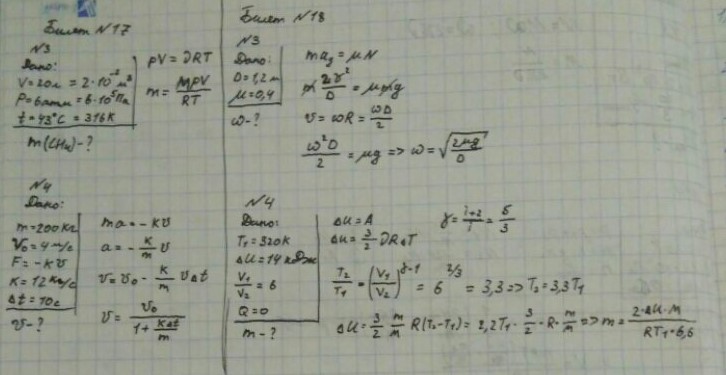 Билет №17
№3
Дано:
V=20л = 2·10⁻² м³
P=6атм = 6·10⁵Па
t=43°C = 316К
m(CH₄)-?
pV = νRT
m = MPV/RT
№4
Дано:
m=200кг
V₀=4м/с
F=-kv
k=12кг/с
Δt=10с
v-?
ma = -kv
a = -k/m v
v = v₀ - k/m vΔt
v = v₀/(1 + kΔt/m)
Билет №18
№3
Дано:
D=1,2м
μ=0,4
ω-?
ma_ц = μN
m 2v²/D = μmg
v = ωR = ωD/2
ω²D/2 = μg => ω = √(2μg/D)
№4
Дано:
T₁=320К
ΔU=14кДж
V₁/V₂ = 6
Q=0
m-?
ΔU = A
ΔU = 3/2 νRΔT
γ = (i+2)/i = 5/3
T₂/T₁ = (V₁/V₂)^(γ-1) = 6^(2/3) = 3,3 => T₂ = 3,3T₁
ΔU = 3/2 m/M R(T₂-T₁) = 2,2T₁· 3/2 ·R· m/M => m = 2·ΔU·M/(RT₁·6,6)